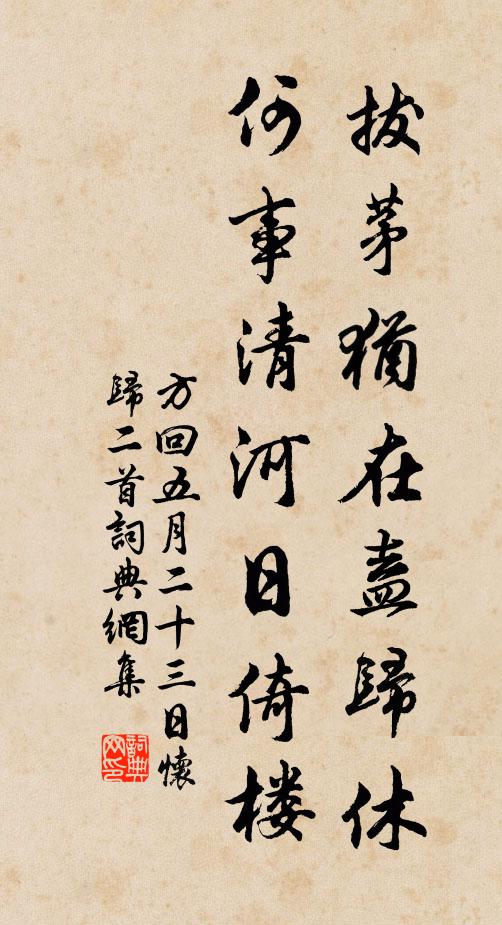 拔茅猶在盍歸休
何事清河日倚楼
方回五月二十三日懷
歸二首詞典網集
詞典
网印